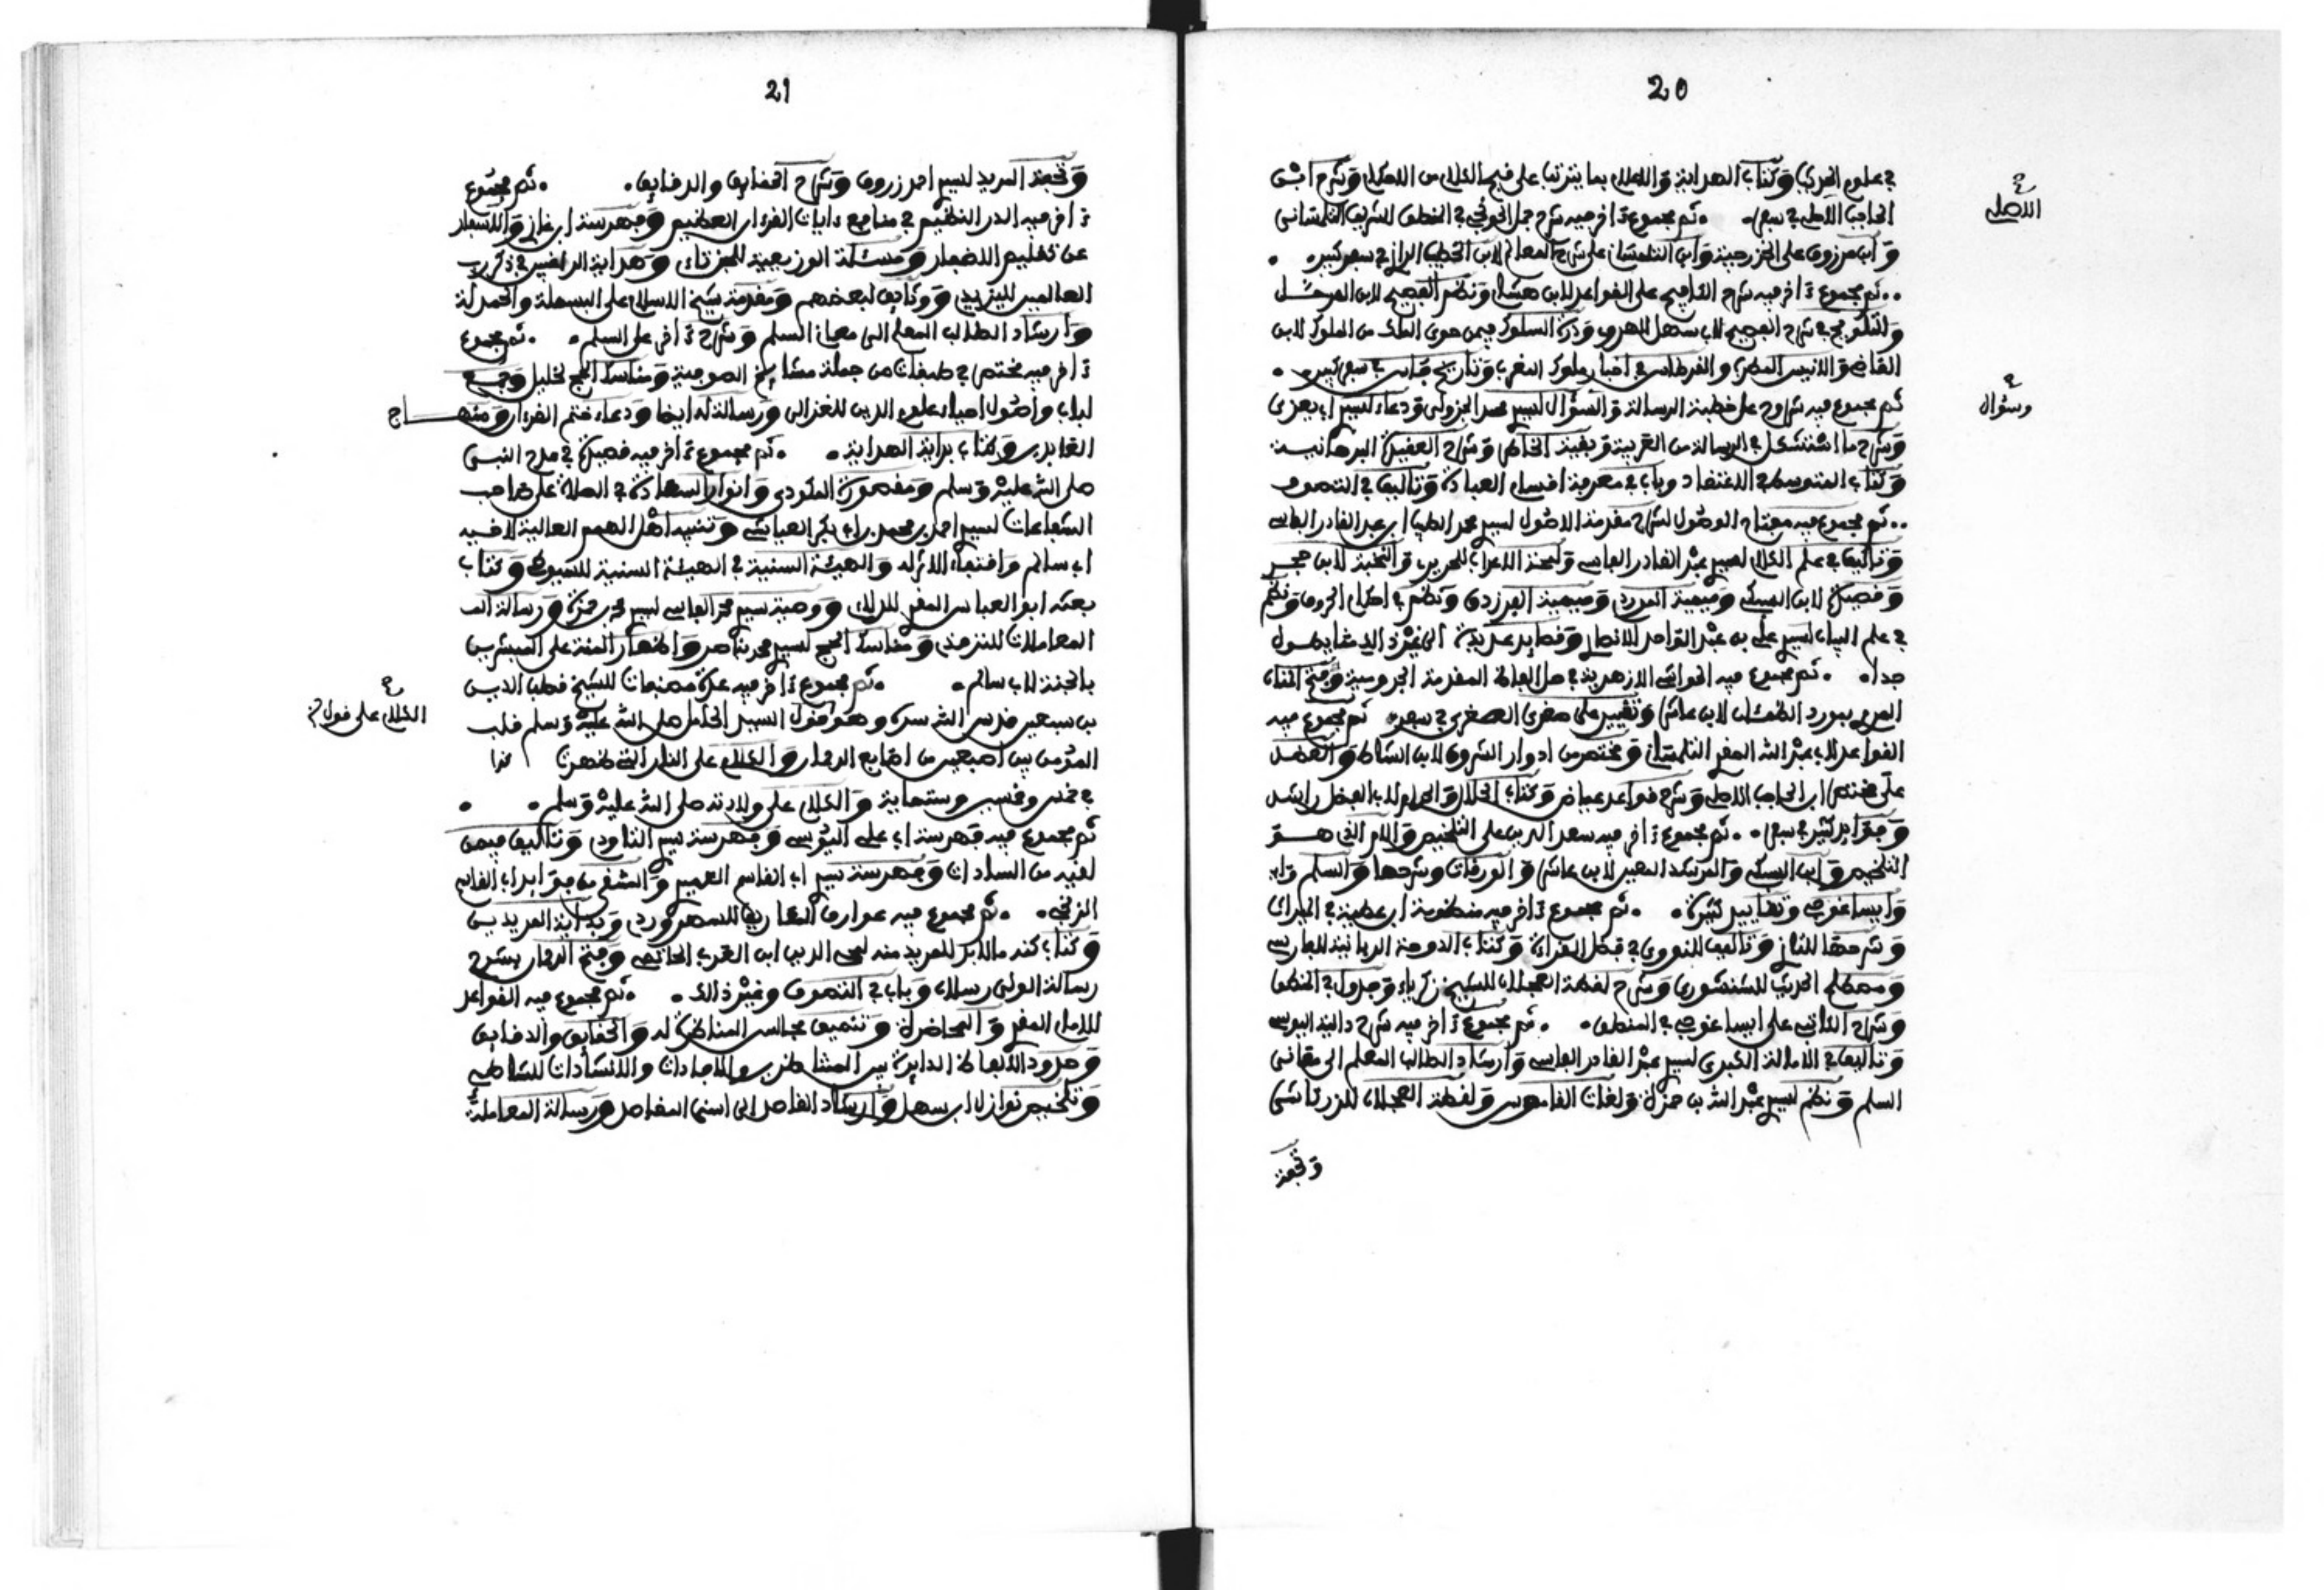 20
في علوم الحديث وكتاب الهداية والاعلام بما يترتب على قبيح الكلام من الاحكام وشرح ابن
الحاجب الاصلي في سفر. ثم مجموع ءاخر فيه شرح جمل الخونجي في المنطق للشريف التلمساني
وابن مرزوق على الخزرجية وابن التلمساني على شرح المعالم لابن الخطيب الرازي في سفر كبير.
ثم مجموع ءاخر فيه شرح الكافيجي على القواعد لابن هشام ونظم الفصيح لابن المرحل
والتلويح في شرح الفصيح لابي سهل الهروي ودرة السلوك فيمن حوى الملك من الملوك لابن
القاضي والانيس المطرب والقرطاس في اخبار ملوك المغرب وتاريخ فاس في سفر كبير.
ثم مجموع فيه شروح على خطبة الرسالة والسؤال لسيدي محمد الجزولي ودعاء لسيدي ابي يعزى
وشرح ما استشكل في الرسالة من العربية وبغية الخاطر وشرح العقيدة البرهانية
وكتاب المتوسط في الاعتقاد وباب في معرفة اقسام العبادة وتاليف في التصوف
ثم مجموع فيه مفتاح الوصول لشرح مقدمة الاصول لسيدي محمد الطيب ابن عبد القادر الفاسي
وتاليف في علم الكلام لسيدي عبد القادر الفاسي ولمحة الاعراب للحريري والنخبة لابن حجر
وقصيدة لابن السبكي وميمية البوردي وميمية الفرزدق ونظم في احكام الحروف ونظم
في علم البيان لسيدي علي بن عبد الواحد الانصاري وقصايد عديدة الى غير ذلك مما يطول
جدا. ثم مجموع فيه الحواشي الازهرية في حل الفاظ المقدمة الجرومية وفتح المنان
المروي بمورد الظمئان لابن عاشر وتقييد على صغرى الصغرى في سفر. ثم مجموع فيه
القواعد لابي عبد الله المقري التلمساني ومختصر من ادوار الشروق لابن الشاط والعضد
على مختصر ابن الحاجب الاصلي وشرح قواعد عياض وكتاب الحلال والحرام لابي الفضل راشد
وفوايد كثيرة في سفر. ثم مجموع ءاخر فيه سعد الدين على التلخيص والام التي هو
التلخيص وابن السبكي والمرشد المعين لابن عاشر والورقات وشرحها والسلم وابن
وايساغوجي وتقاييد كثيرة. ثم مجموع ءاخر فيه منظومة ابن عطية في الجبران
وشرحها للثاز وتاليف للنووي في فضل القراءة وكتاب الدوحة الريانية للفارسي
ومصطلح الحديث للشنشوري وشرح لقطة العجلان للشيخ زكرياء وجدول في المنطق
وشرح الكاتي على ايساغوجي في المنطق. ثم مجموع ءاخر فيه شرح دالية اليوسي
وتاليف في الامالة الكبرى لسيدي عبد القادر الفاسي وارشاد الطالب المعلم الى معاني
السلم ونظم لسيدي عبد الله بن حمزة ولغات القاموس ولقطة العجلان للزركشي
وتحفة
الاصلي
وسؤال
21
وتحفة المريد لسيدي احمد زروق وشرح الحقايق والدقايق. ثم مجموع
ءاخر فيه الدر النظيم في منافع ءايات القرءان العظيم وفهرسة ابن غازي والاسفار
عن تقليم الاظفار ومسئلة الوزيعية للجزنائي وهداية الراغبين في ذكر رب
العالمين لليزيدي ووثايق لبعضهم ومقدمة شيخ الاسلام على البسملة والحمدلة
وارشاد الطلاب المعلم الى معاني السلم وشرح ءاخر على السلم. ثم مجموع
ءاخر فيه مختصر في طبقات من جملة مشايخ الصوفية ومناسك الحج لخليل وجمع
لباب واصول احياء علوم الدين للغزالي ورسالة له ايضا ودعاء ختم القرءان ومنهاج
العابدين وكتاب بداية الهداية. ثم مجموع ءاخر فيه قصيدة في مدح النبي
صلى الله عليه وسلم ومقصورة المكودي وانوار السعادة في الصلاة على صاحب
الشفاعات لسيدي احمد بن محمد بن ابي بكر العياشي وتنبيه اهل الهمم العالية لاخيه
ابي سالم واقتفاء الاثر له والهيئة السنية في الهيئة السنية للسيوطي وكتاب
بعثه ابو العباس المقري للدلاء ووصية سيدي محمد الفاسي لسيدي محمد بن حمزة ورسالة الف
المعاملات للترمذي ومناسك الحج لسيدي محمد بناصر واظهار المنة على المبشرين
بالجنة لابي سالم. ثم مجموع ءاخر فيه عدة مصنفات للشيخ قطب الدين
بن سبعين قدس الله سره وهو قول السيد الكامل صلى الله عليه وسلم قلب
المؤمن بين اصبعين من اصابع الرحمان والكلام على النار التي ظهرت كذا
في خمس وخمسين وستماية والكلام على ولادته صلى الله عليه وسلم.
ثم مجموع فيه فهرسة ابي علي اليوسي وفهرسة سيدي التاودي وتاليف فيمن
لقيه من السادات وفهرسة سيدي ابي القاسم العميري والمشرق من فوايد ابي القاسم
الزنجي. ثم مجموع فيه عوارف المعارف للسهروردي وبداية المريدين
وكتاب كنه ما لابد للمريد منه لمحي الدين ابن العربي الحاتمي وفتح الرحمان بشرح
رسالة الولي رسلان وباب في التصوف وغير ذلك. ثم مجموع فيه القواعد
للامام المقري والمحاضرة وتنميق مجالس المناظرة له والحقايق والدقايق
وحدود الالفاظ الدايرة بين المتناظرين والافادات والانشادات للشاطبي
وتلخيص نوازل ابن سهل وارشاد القاصد الى اسنى المقاصد ورسالة المعاملة
الكلام على قول